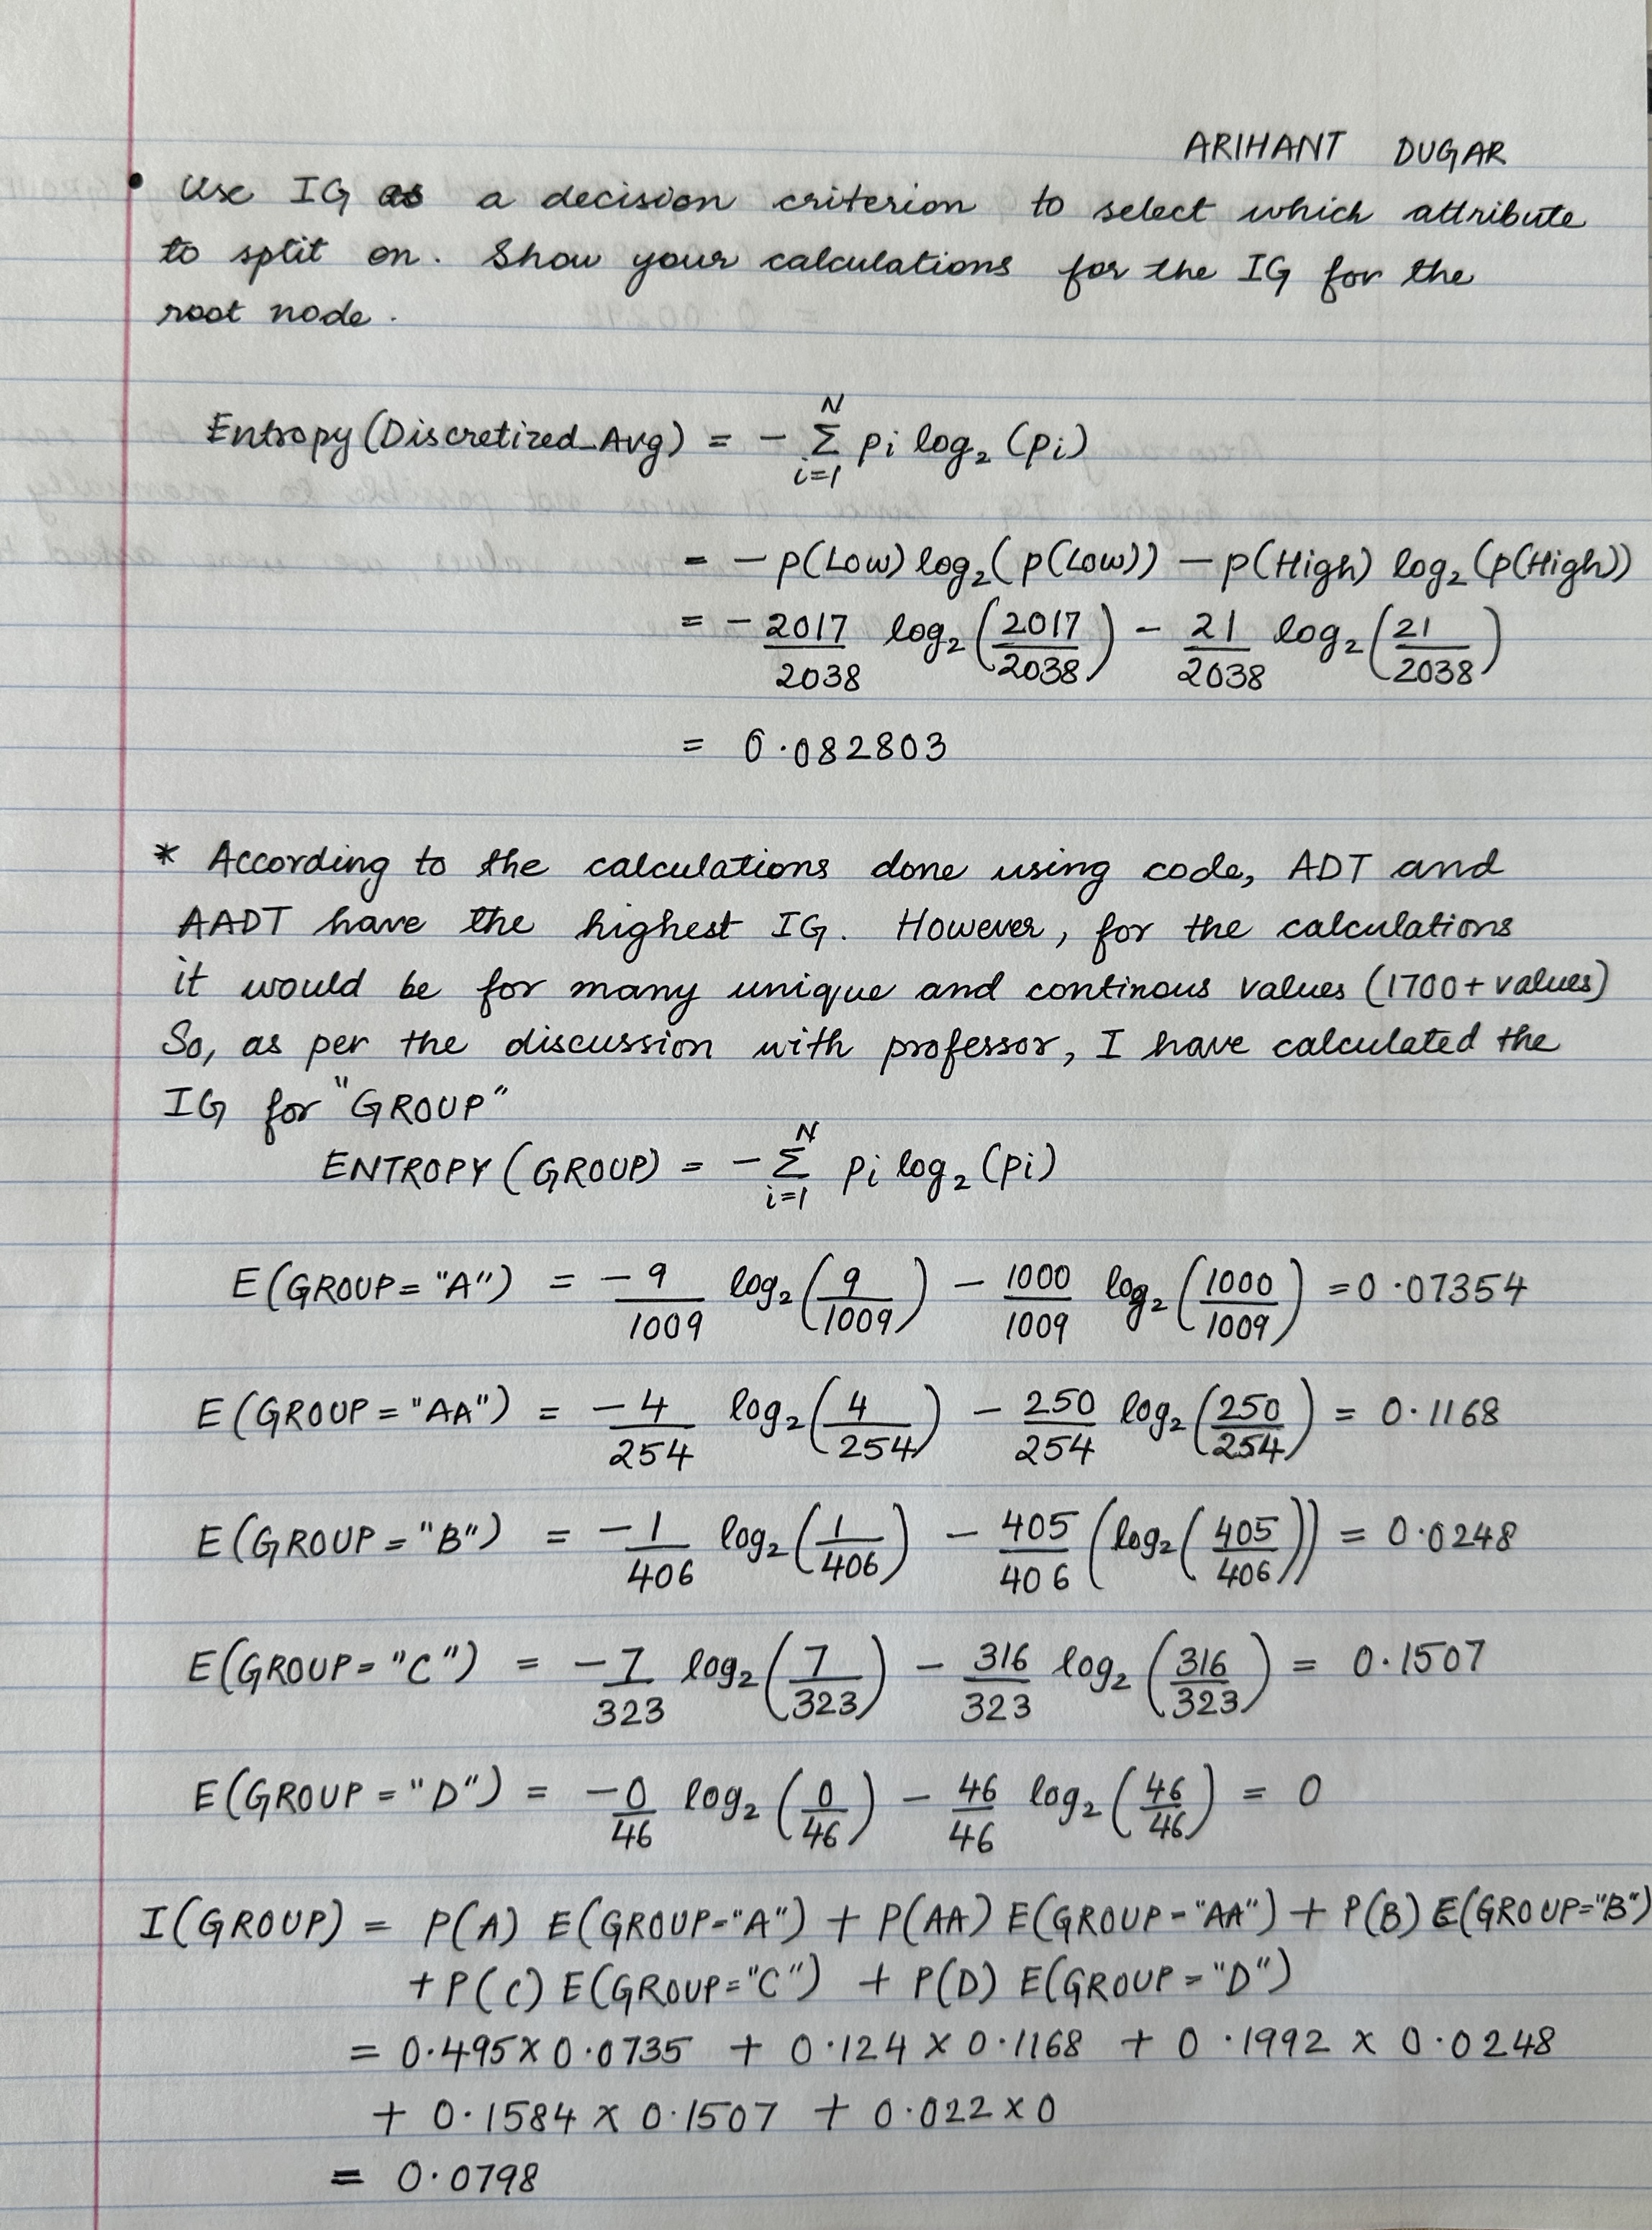 ARIHANT DUGAR
• Use IG as a decision criterion to select which attribute
to split on. Show your calculations for the IG for the
root node.
Entropy(Discretized_Avg) = - Σ_{i=1}^{N} pi log₂ (pi)
= - P(Low) log₂(P(Low)) - P(High) log₂(P(High))
= - 2017/2038 log₂(2017/2038) - 21/2038 log₂(21/2038)
= 0.082803
* According to the calculations done using code, ADT and
AADT have the highest IG. However, for the calculations
it would be for many unique and continous values (1700+ values)
So, as per the discussion with professor, I have calculated the
IG for "GROUP"
ENTROPY(GROUP) = - Σ_{i=1}^{N} pi log₂(pi)
E(GROUP="A") = -9/1009 log₂(9/1009) - 1000/1009 log₂(1000/1009) = 0.07354
E(GROUP="AA") = -4/254 log₂(4/254) - 250/254 log₂(250/254) = 0.1168
E(GROUP="B") = -1/406 log₂(1/406) - 405/406 (log₂(405/406)) = 0.0248
E(GROUP="C") = -7/323 log₂(7/323) - 316/323 log₂(316/323) = 0.1507
E(GROUP="D") = -0/46 log₂(0/46) - 46/46 log₂(46/46) = 0
I(GROUP) = P(A) E(GROUP="A") + P(AA) E(GROUP="AA") + P(B) E(GROUP="B")
+ P(C) E(GROUP="C") + P(D) E(GROUP="D")
= 0.495 x 0.0735 + 0.124 x 0.1168 + 0.1992 x 0.0248
+ 0.1584 x 0.1507 + 0.022 x 0
= 0.0798